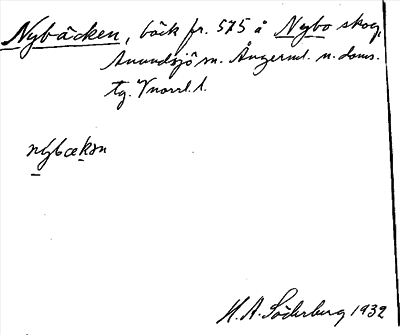 Nybäcken, bäck fr. 575 å Nybo skog,
Anundsjö sn. Ångerml. n. doms.
tg. Vnorrl. l.
nybækən
H. A. Söderberg 1932